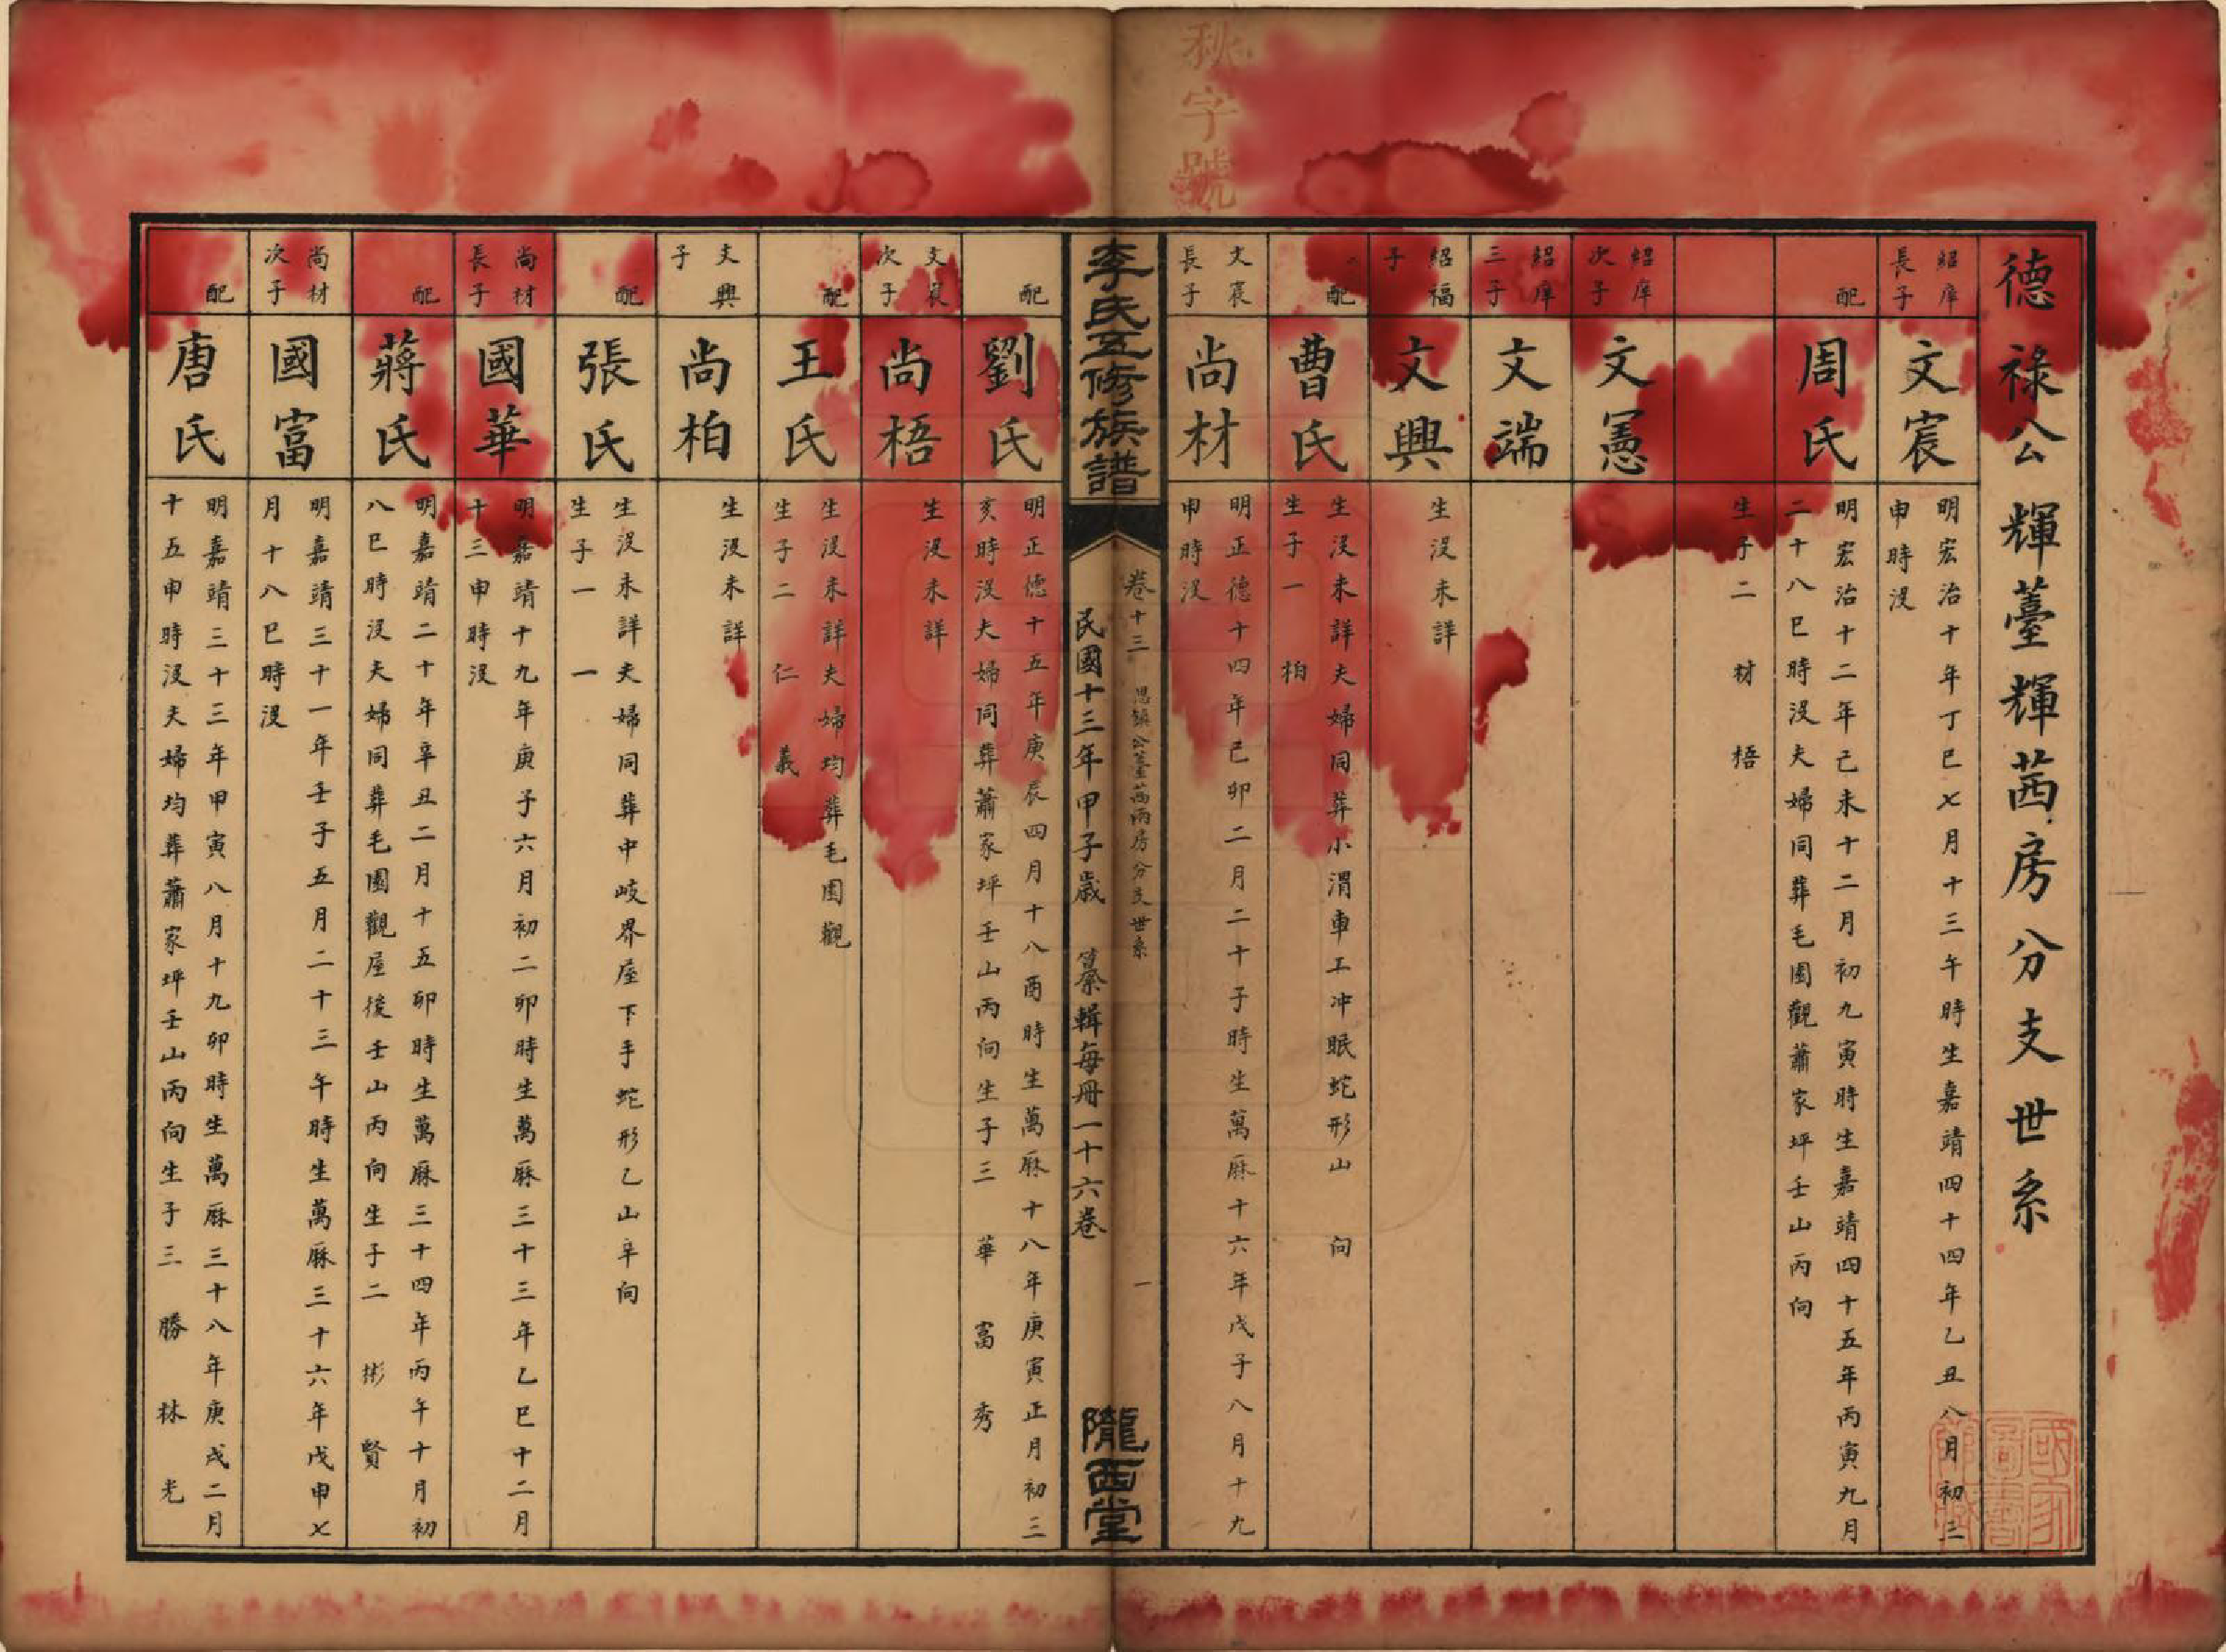 秋字號
德祿公輝薹輝茜房分支世系
紹庠
長子
文宸
明宏治十年丁巳七月十三午時生嘉靖四十四年乙丑八月初三
申時沒
配
周氏
明宏治十二年己未十二月初九寅時生嘉靖四十五年丙寅九月
二十八巳時沒夫婦同葬毛園觀蕭家坪壬山丙向
生子二 材 梧
紹庠
次子
文憲
紹庠
三子
文端
紹福
子
文興
生沒未詳
配
曹氏
生沒未詳夫婦同葬小渭車工冲眠蛇形山 向
生子一 柏
文宸
長子
尚材
明正德十四年己卯二月二十子時生萬厤十六年戊子八月十九
申時沒
李氏五修族譜
卷十三 思鎮公薹茜兩房分支世系 一
民國十三年甲子歲 纂輯每冊一十六卷
隴西堂
配
劉氏
明正德十五年庚辰四月十八酉時生萬厤十八年庚寅正月初三
亥時沒夫婦同葬蕭家坪壬山丙向生子三 華 富 秀
文宸
次子
尚梧
生沒未詳
配
王氏
生沒未詳夫婦均葬毛園觀
生子二 仁 義
文興
子
尚柏
生沒未詳
配
張氏
生沒未詳夫婦同葬中岐界屋下手蛇形乙山辛向
生子一 一
尚材
長子
國華
明嘉靖十九年庚子六月初二卯時生萬厤三十三年乙巳十二月
十三申時沒
配
蔣氏
明嘉靖二十年辛丑二月十五卯時生萬厤三十四年丙午十月初
八巳時沒夫婦同葬毛園觀屋後壬山丙向生子二 彬 賢
尚材
次子
國富
明嘉靖三十一年壬子五月二十三午時生萬厤三十六年戊申七
月十八巳時沒
配
唐氏
明嘉靖三十三年甲寅八月十九卯時生萬厤三十八年庚戌二月
十五申時沒夫婦均葬蕭家坪壬山丙向生子三 勝 林 光